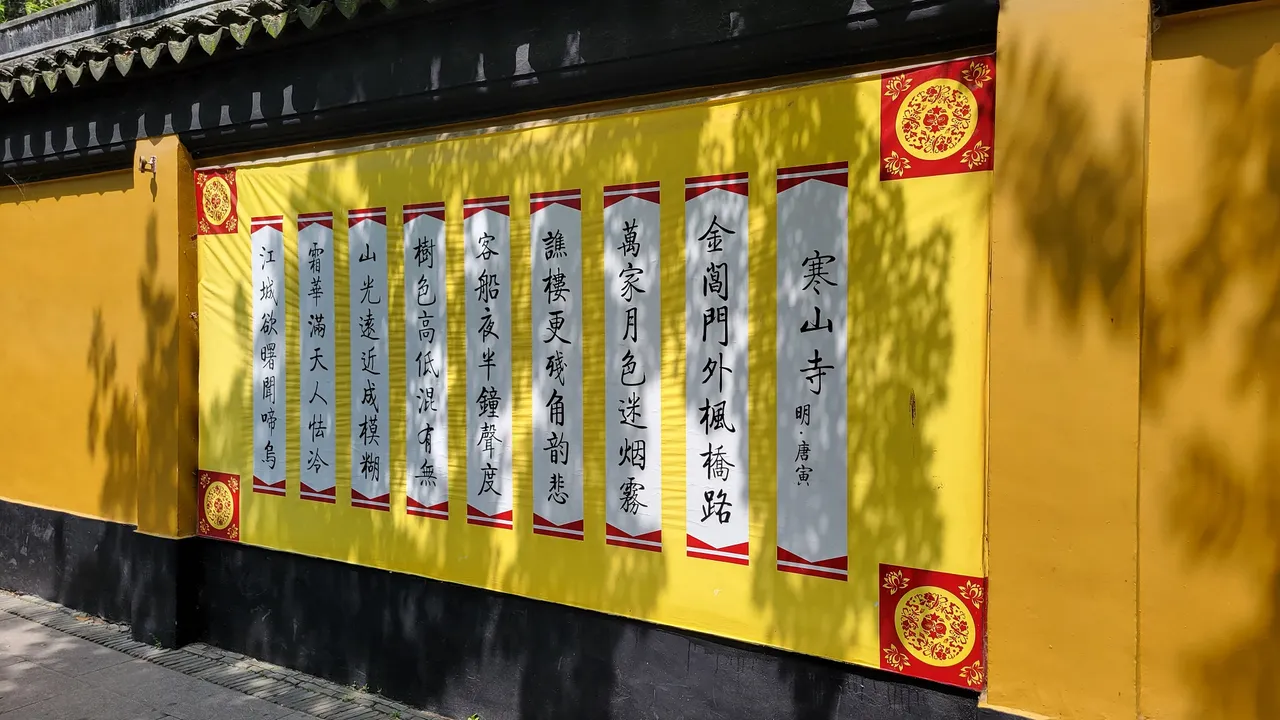 寒山寺 明·唐寅
金閶門外楓橋路
萬家月色迷烟霧
譙樓更殘角韵悲
客船夜半鐘聲度
樹色高低混有無
山光遠近成模糊
霜華滿天人怯冷
江城欲曙聞啼烏